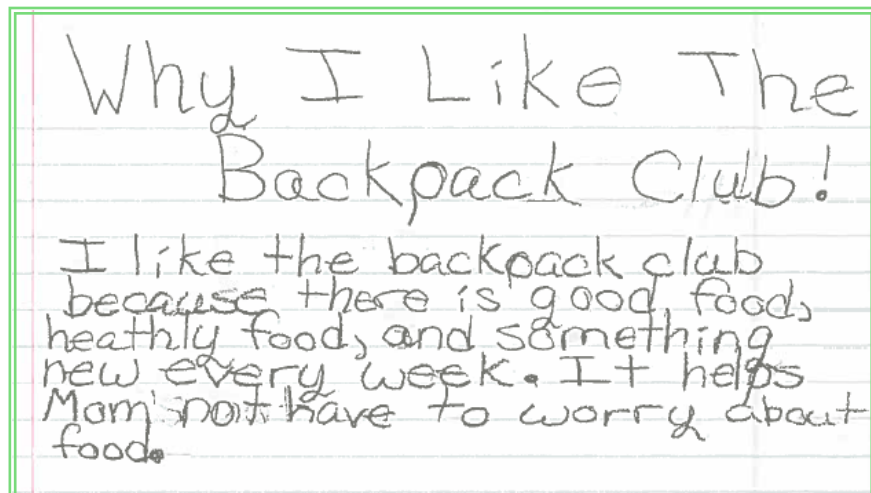 Why I Like The
Backpack Club!
I like the backpack club
because there is good food,
heathly food, and something
new every week. It helps
Mom not have to worry about
food.